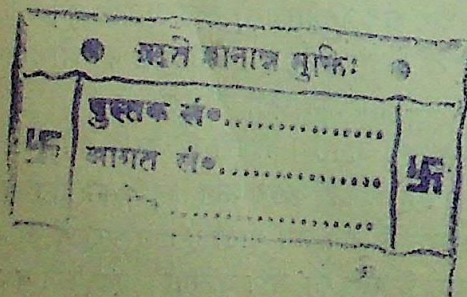 ऋते ज्ञानान्न मुक्तिः
पुस्तक सं०................
आगत सं०................
................